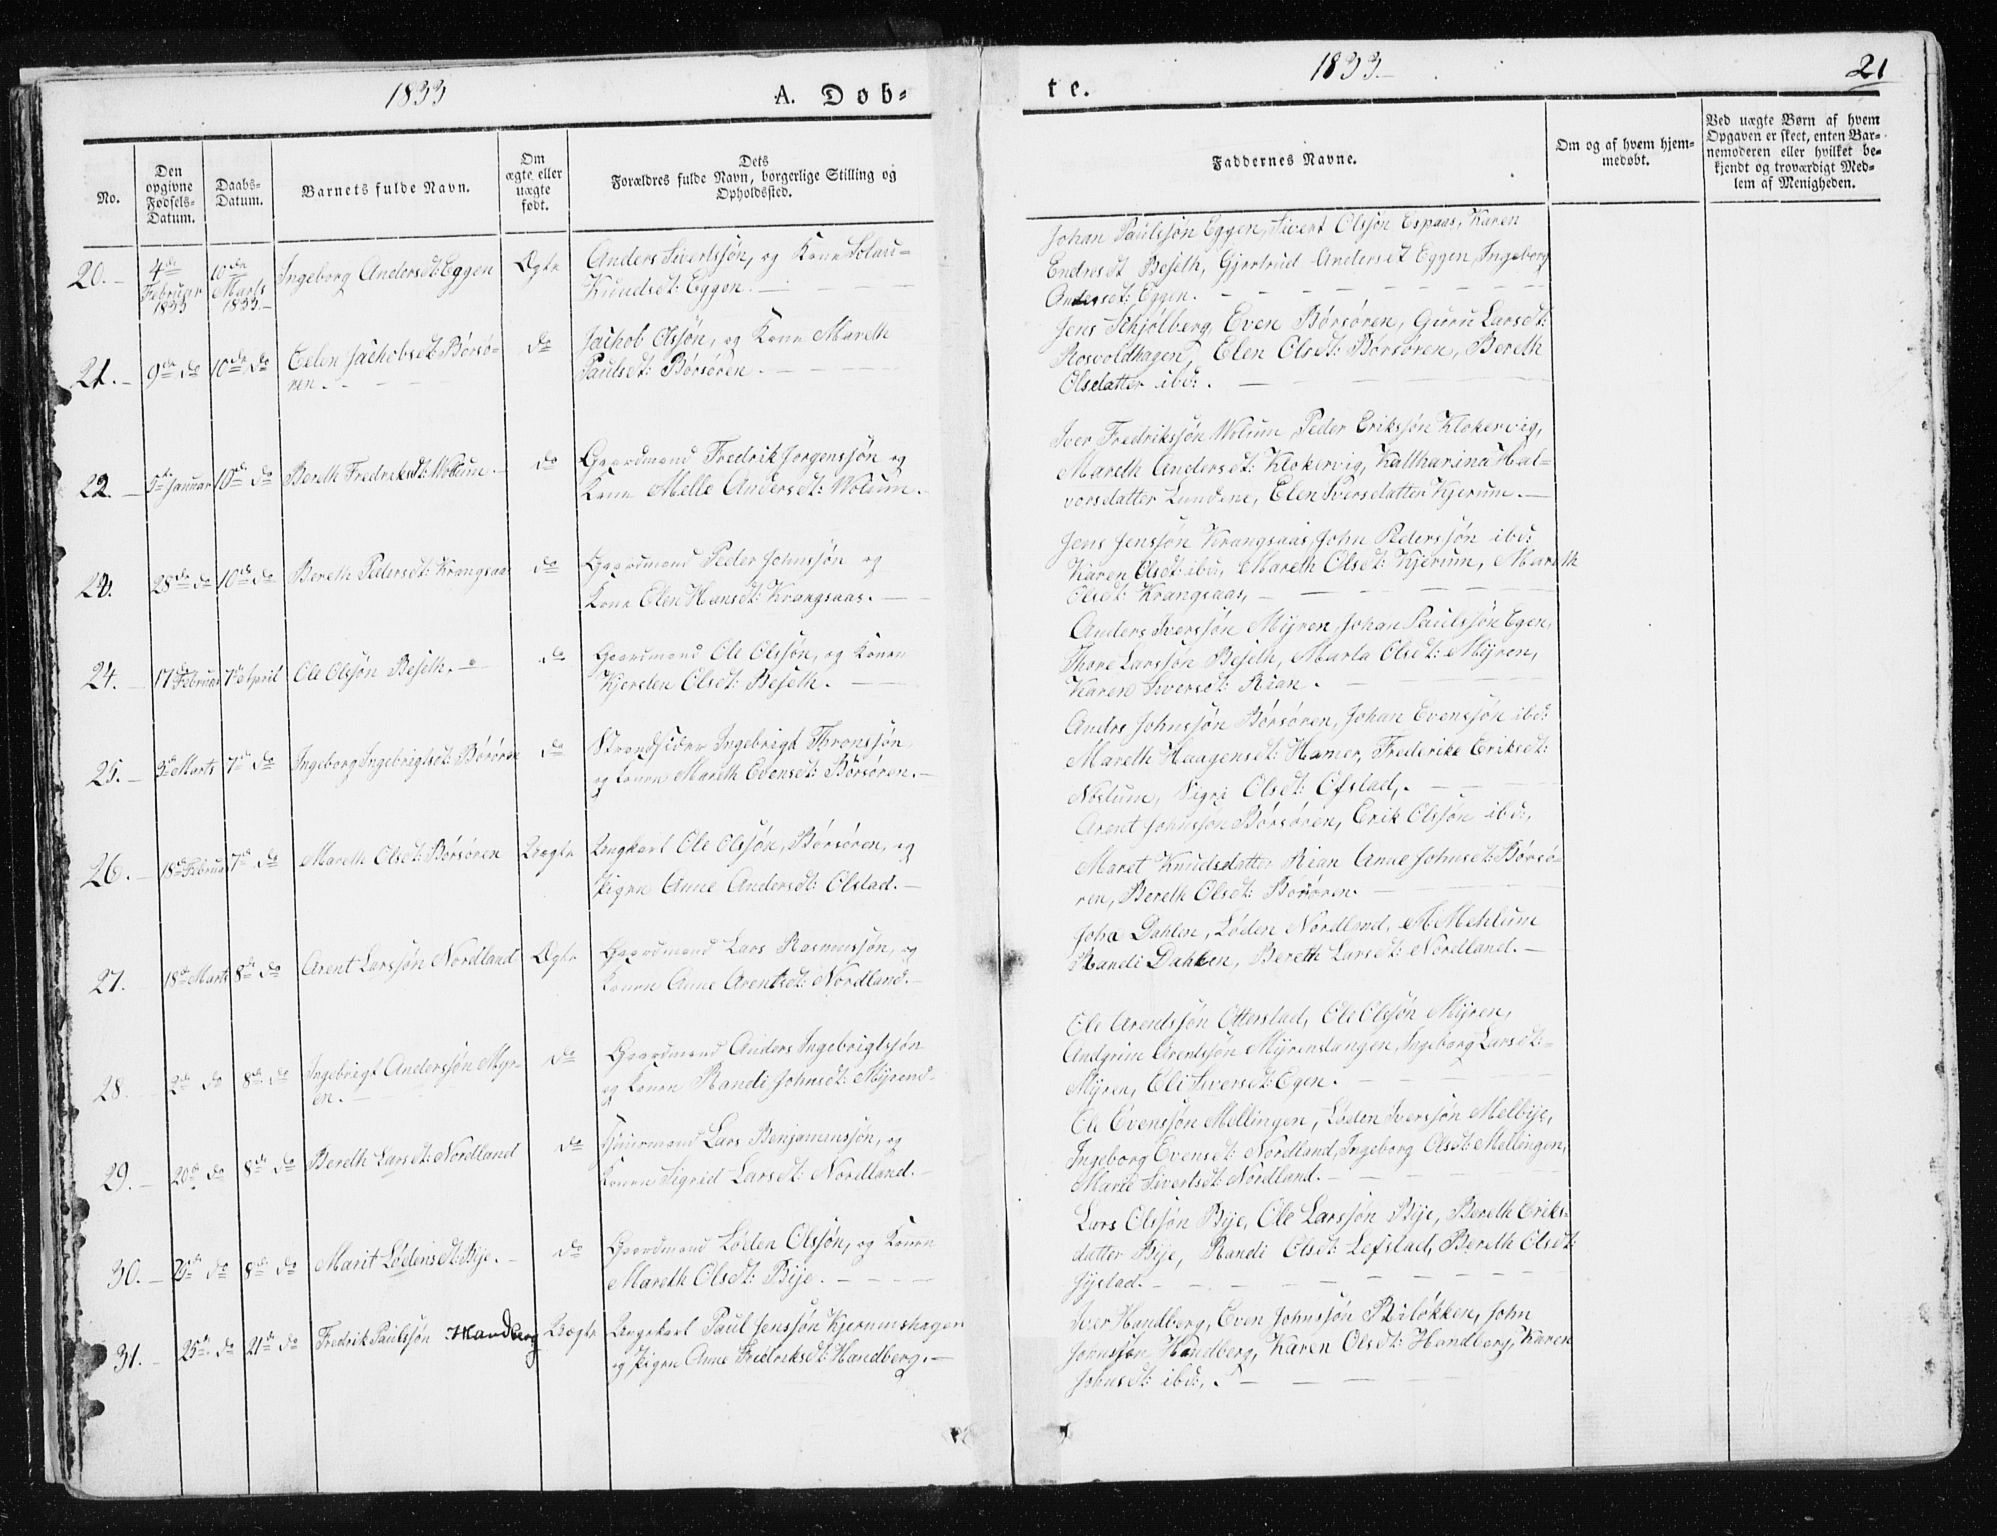 1833
A. Døb-
te.
1833.
21
No.
Den opgivne Fødsels-Datum.
Daabs-Datum.
Barnets fulde Navn.
Om ægte eller uægte født.
Dets Forældres fulde Navn, borgerlige Stilling og Opholdssted.
Faddernes Navne.
Om og af hvem hjemmedøbt.
Ved uægte Børn af hvem Opgaven er skeet, enten Barnemoderen eller hvilket bekjendt og troværdigt Medlem af Menigheden.
20. 4de Februar 1833 10de Marts 1833. Ingeborg Andersdt: Eggen Ægte Anders Sivertsøn, og Kone
Knudsdt: Eggen.
Johan Paulsøn Eggen, Sivert Olsøn Espaas, Karen
Endresdt Beseth, Gjertrud Andersdt Eggen, Ingeborg
Andersdt: Eggen.
21. 9de do 10de do Eelen Jachobsdt: Børsø-
ren. do Jachob Olsøn, og Kone Mareth
Paulsdt: Børsøren.
Jens Schjølberg, Even Børsøren, Guru Larsdt:
Rosvoldhagen, Elen Olsdt: Børsøren, Bereth
Olsdatter ibd:
22. Januar 10de do Bereth Fredriksdt: Wolum. do Gaardmand Fredrik Jørgensøn og
Kone Melle Andersdt: Wolum.
Iver Fredriksøn Wolum, Peder Eriksøn Klokervig,
Mareth Andersdt: Klokervig, Kattharina Hal-
vorsdatter Lundene, Elen Iversdatter Kjerum.
24. 28de do 10de do Bereth Pedersdt: Krangsaas do Gaardmand Peder Johnsøn og
Kone Elen Hansdt: Krangsaas.
Jens Jensøn Krangsaas, John Pedersøn ibd:
Karen Olsdt: ibd, Mareth Olsdt: Kjerum, Mareth
Olsdt: Krangsaas,
24. 17de Februar 7de April Ole Olsøn Beseth. do Gaardmand Ole Olsøn, og Konen
Kjersten Olsdt: Beseth.
Anders Iversøn Myren, Johan Paulsøn Egen,
Thore Larssøn Beseth, Marta Olsdt: Myren,
Karen Siversdt: Rian.
25. 3de Marts 7de do Ingeborg Ingebrigtsdt: Børøren do Strandsider Ingebrigt Thronsøn
og Konen Mareth Evensdt: Børsøren.
Andrs Johnsøn Børsøren, Johan Evensøn ibd:
Mareth Haagensdt: Hamer, Frederike Eriksdt:
Noslum, Sigri Olsdt: Ofstad,
26. 18de Februar 7de do Mareth Olsdt: Børsøren Uægte Ungkarl Ole Olsøn, Børsøren, og
Pigen Anne Andersdt: Olstad.
Arent Johnsøn Børsøren, Erik Olsøn ibd,
Maret Knudsdatter Rian Anne Johnsdt: Børsø-
ren, Bereth Olsdt: Børøren.
27. 18de Marts 8de do Arent Larssøn Nordland Ægte Gaardmand Lars Rasmussøn, og
Konen Anne Arentsdt: Nordland.
Joha Dahlen, Løden Nordland, A: Mehlum
Randi Dahlen, Bereth Larsdt: Nordland.
28. 2de do 8de do Ingebrigt Andersøn Myr-
en. do Gaardmand Anders Ingebrigtsøn
og Konen Randi Johnsdt: Myrend.
Ole Arentsøn Otterstad, Ole Olsøn Myren,
Andgrim Arentsøn Myrenslangen, Ingeborg Larsdt:
Myren, Eli Siversdt: Egen.
29. 20de do 8de do Bereth Larsdt: Nordland do Huusmand Lars Benjaminsøn, og
Konen Sigrid Larsdt: Nordland.
Ole Evensøn Mellingen, Løden Iversøn Melbije,
Ingeborg Evensdt: Nordland, Ingeborg Olsdt: Mellingen,
Marie Sivertsdt: Nordland.
30. 20de do 8de do Marit Lødensdt: Bije. do Gaardmand Løden Olsøn, og Konen
Mareth Olsdt: Bije.
Lars Olsøn Bije, Ole Larssøn Bije, Bereth Eriks-
datter Bije, Randi Olsdt: Lefstad, Bereth Olsdt:
Hystad.
31. 25de do 21de do Fredrik Paulsøn Handberg Uægte Ungekarl Paul Jensøn Kjerumshagen
og Pigen Anne Fredriksdt: Handberg.
Iver Handberg, Even Johnsøn Riløkken, John
Johnsøn Handberg, Karen Olsdt: Handberg, Karen
Johnsdt: ibd:,